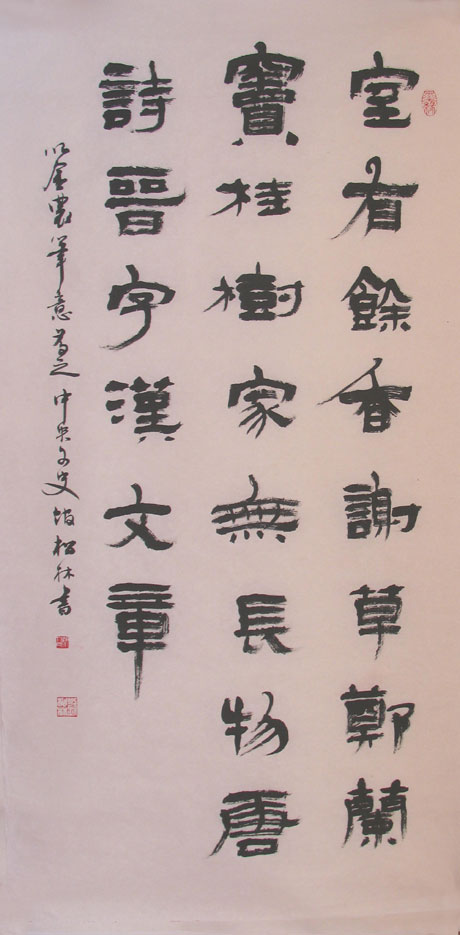 室有餘香謝草鄭蘭
竇桂樹家無長物唐
詩晉字漢文章
以金農筆意為之中央文史館松林書